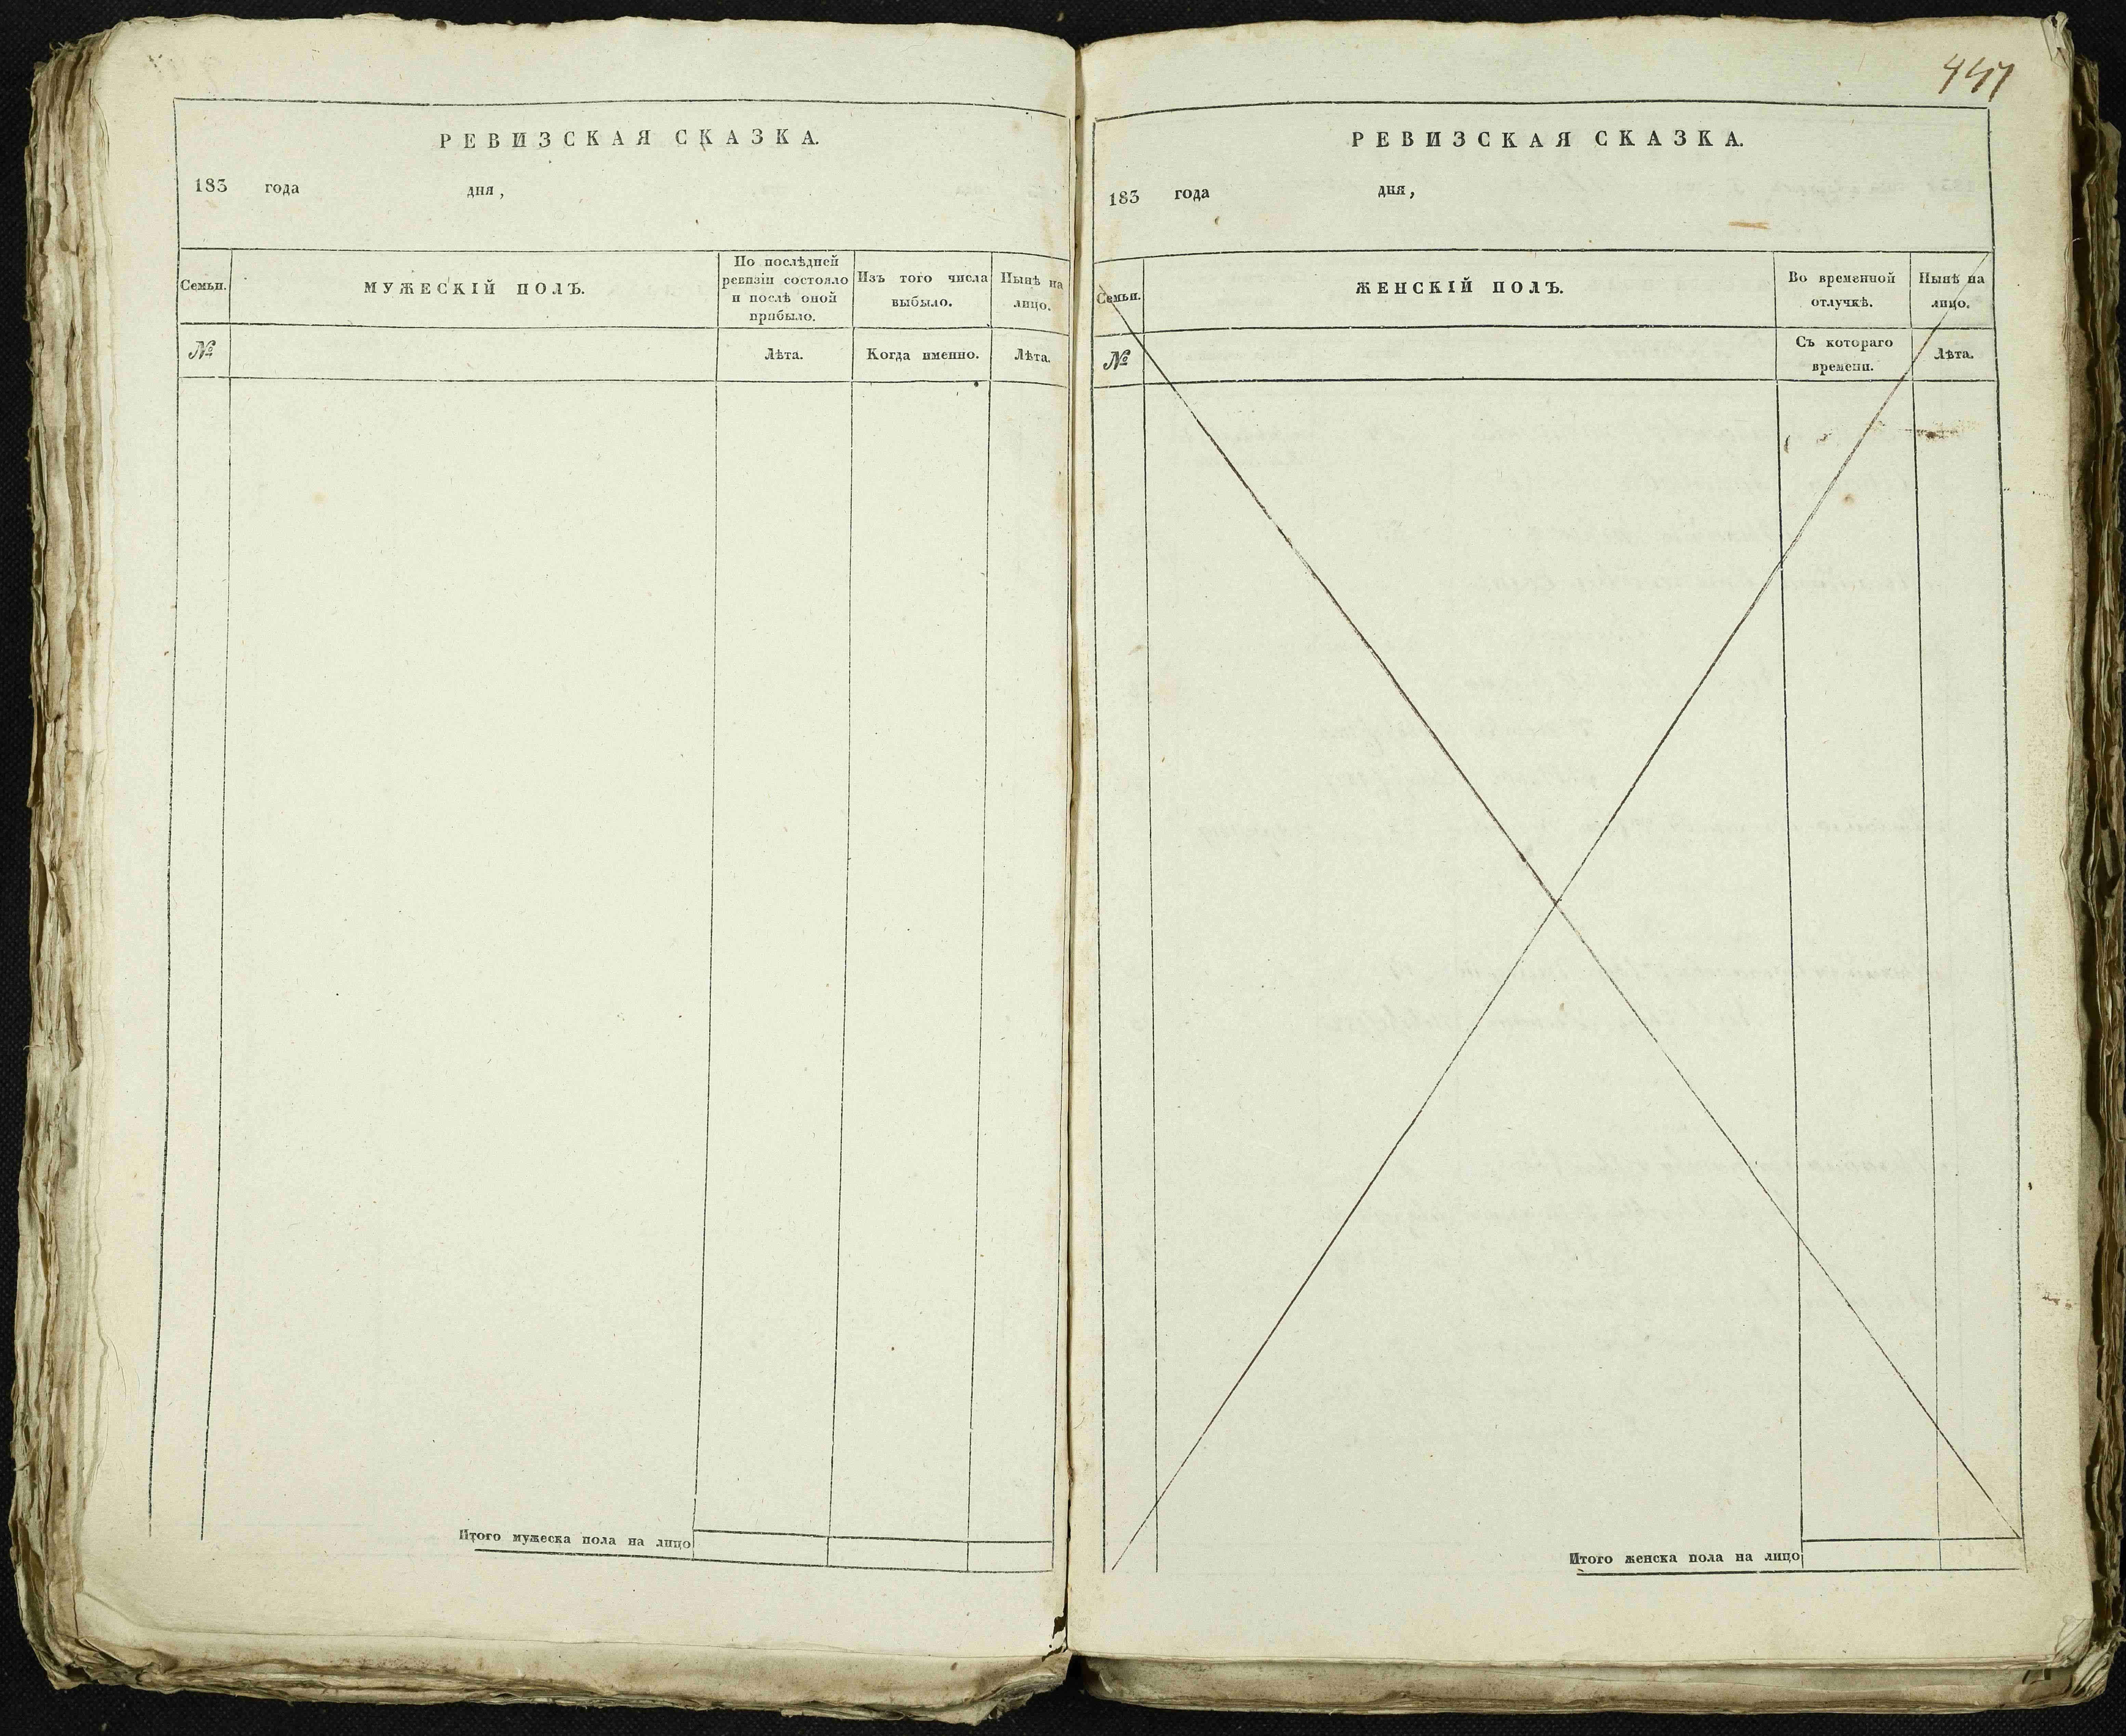 РЕВИЗСКАЯ СКАЗКА.
183 года дня,
Семьи.
МУЖЕСКІЙ ПОЛЪ.
По послѣдней
ревизіи состояло
и послѣ оной
прибыло.
Изъ того числа
выбыло.
Нынѣ на
лицо.
№
Лѣта.
Когда именно.
Лѣта.
Итого мужеска пола на лицо
447
РЕВИЗСКАЯ СКАЗКА.
183 года дня,
Семьи.
ЖЕНСКІЙ ПОЛЪ.
Во временной
отлучкѣ.
Нынѣ на
лицо.
№
Съ котораго
времени.
Лѣта.
Итого женска пола на лицо